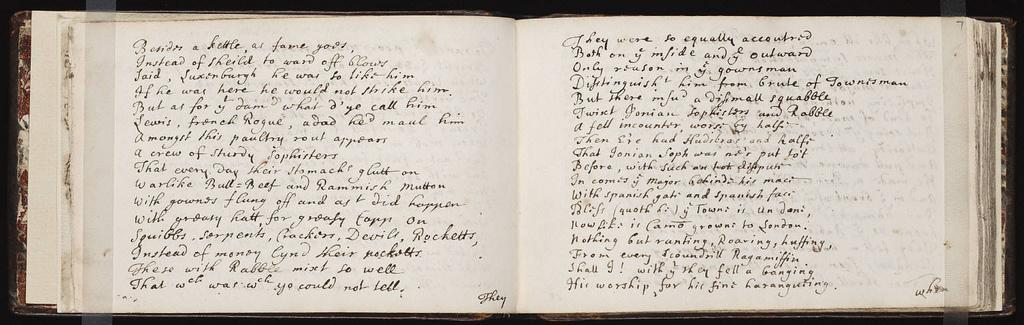 Besides a kettle, as fame goes,
Instead of sheild to ward off blows
Said, Luxenburgh he was so like him
If he was here he would not strike him.
But as for yͤ damd what d'ye call him
Lewis, french Rogue, adad he'd maul him
Amongst this paultry rout appears
A crew of sturdy Sophisters
That every Day their stomachs glutt on
Warlike Bull-Beef and Rammish Mutton
With gownes flung off and as't did happen
With greasy hatt for greasy Capp on
Squibbs, Serpents, Crackers, Devils, Rocketts,
Instead of money lyn'd their pocketts
These with Rabble mixt so well
That wᶜʰ was wᶜʰ yo could not tell.
They
7
They were so equally accoutred
Both on yͤ inside and yͤ outward
Only reason in yͤ gownsman
Disstinguish't him from brute of Townesman
But there insu'd a dissmall squabble
Twixt Jonian Sophisters and Rabble
A fell incounter, worse by halfe
Then Ere had Hudibras and Ralfe
That Jonian Soph was ne'r put to't
Before, with such an hot dispute
In comes yͤ Major behinde his mace
With Spanish gate and Spanish face
Bless quoth he yͤ Towne is undone,
How like is Camb growne to London.
Nothing but ranting, Roaring, huffing,
From every Scoundrill Ragamiffin.
Shall I! with yͭ they fell a banging
His worship for his fine harangueing.
when